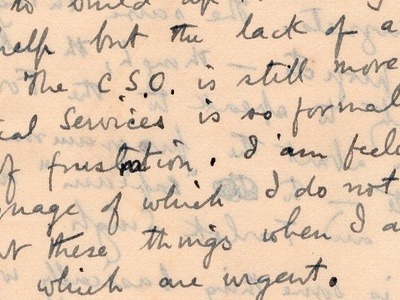 to build up
help but the lack of a
The C.S.O. is still more
ial Services is so formal
of frustration. I am feel
guage of which I do not
ut these things when I a
which are urgent.